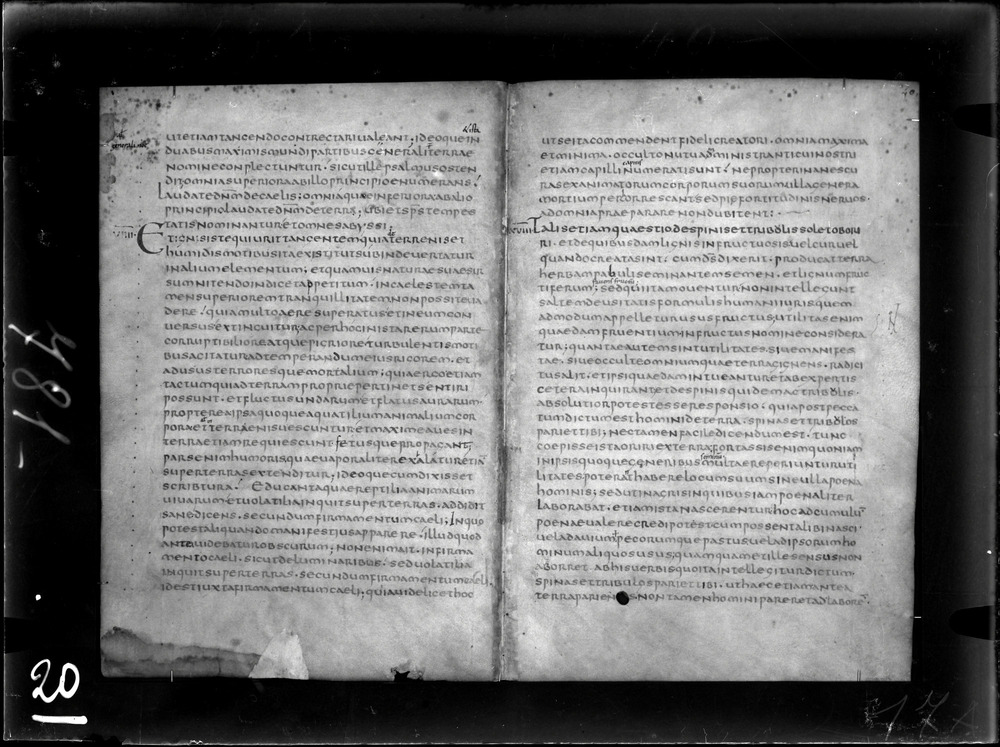 ut etiam tangendo contrectari valeant . ideoque in
duabus maximis mundi partibus generaliter terrae
nomine conplectuntur . sicut ille psalmus osten
dit omnia superiora ab illo principio enumerans
Laudate dnm de caelis ; omniaque inferiora ab alio
principio laudate dnm de terra ; ubi et sps tempes
tatis nominantur et omnes abyssi ;
et ignis iste qui urit tangentem quia terrenis et
humidis motibus ita existit ut subinde vertatur
in alium elementum ; et quamvis naturae suae sur
sum nitendo indicet adpetitum . in caeleste mta
men superiorem tranquillitatem non possit eva
dere ; quia multo aere superatus et in eum con
versus extinguitur ac per hoc in ista rerum parte
corruptibiliore atque pigriore turbulentis moti
bus agitatur ad temperandum eius rigorem . et
ad usus terroresque mortalium ; quia ergo etiam
tactum qui ad terram proprie pertinet sentiri
possunt . et fluctus undarum et flatus aurarum .
propterea ipsa quoque aquatilium animalium cor
pora et terrae nis vescuntur et maxime aves in
terra etiam requiescunt fetusque propagant ;
pars enim humoris quae vaporaliter exalatur etia
super terras extenditur ; ideoque cum dixisset
scribtura . Educant aquae reptilia animarum
vivarum et volatilia inquit super terras . addidit
sane dicens . secundum firmamentum caeli ; In quo
potest aliquando manifestius apparere . illud quod
ante videbatur obscurum ; non enim ait . in firma
mento caeli . sicut de luminaribus . sed volatilia
inquit super terras . secundum firmamentum caeli
id est iuxta firmamentum caeli ; quia videlicet hoc
ut se ita commendent fideli creatori . omnia maxima
et minima . occulto nutu administranti cui nostri
etiam capilli numerati sunt . ne propter inanes cu
ras exanimatorum corporum suorum ulla genera
mortium perhorrescant sed pios fortitudinis nervos .
ad omnia praeparare non dubitent :
Talis etiam quaestio de spinis et tribulis solet obori
ri . et de quibusdam lignis infructuosis vel cur vel
quando creata sint . cum ds dixerit . producat terra
herbam pabuli seminantem semen . et lignum fruc
tiferum ; sed qui ita moventur non intellegunt
saltem de usitatis formulis humani iuris quem
admodum appelletur usus fructus ; utilitas enim
quaedam fruentium in fructus nomine considera
tur ; quantae autem sint utilitates . sive manifes
tae . sive occulte omnium quae terra gignens . radici
tus alit . et ipsi quaedam intueantur et ab expertis
cetera inquirant et de spinis quidem ac tribulis .
absolutior potest esse responsio . quia post pecca
tum dictum est homini de terra . spinas et tribulos
pariet tibi ; nec tamen facile dicendum est . tunc
coepisse ista oriri ex terra ; fortassis enim quoniam
in ipsis quoque generibus multae reperiuntur uti
litates poterat habere locum suum sine ulla poena
hominis ; sed ut in agris in quibus iam poenaliter
laborabat . etiam ista nascerentur hoc ad cumulum
poenae valere credi potest cum possent alibi nasci .
vel ad avium pecorumque pastus vel ad ipsorum ho
minum aliquos usus ; quamquam et ille sensus non
aborret ab his verbis quo ita intellegitur dictum .
spinas et tribulos pariet tibi . ut haec etiam antea
terra pariens non tamen homini pareret ad labore
481
20